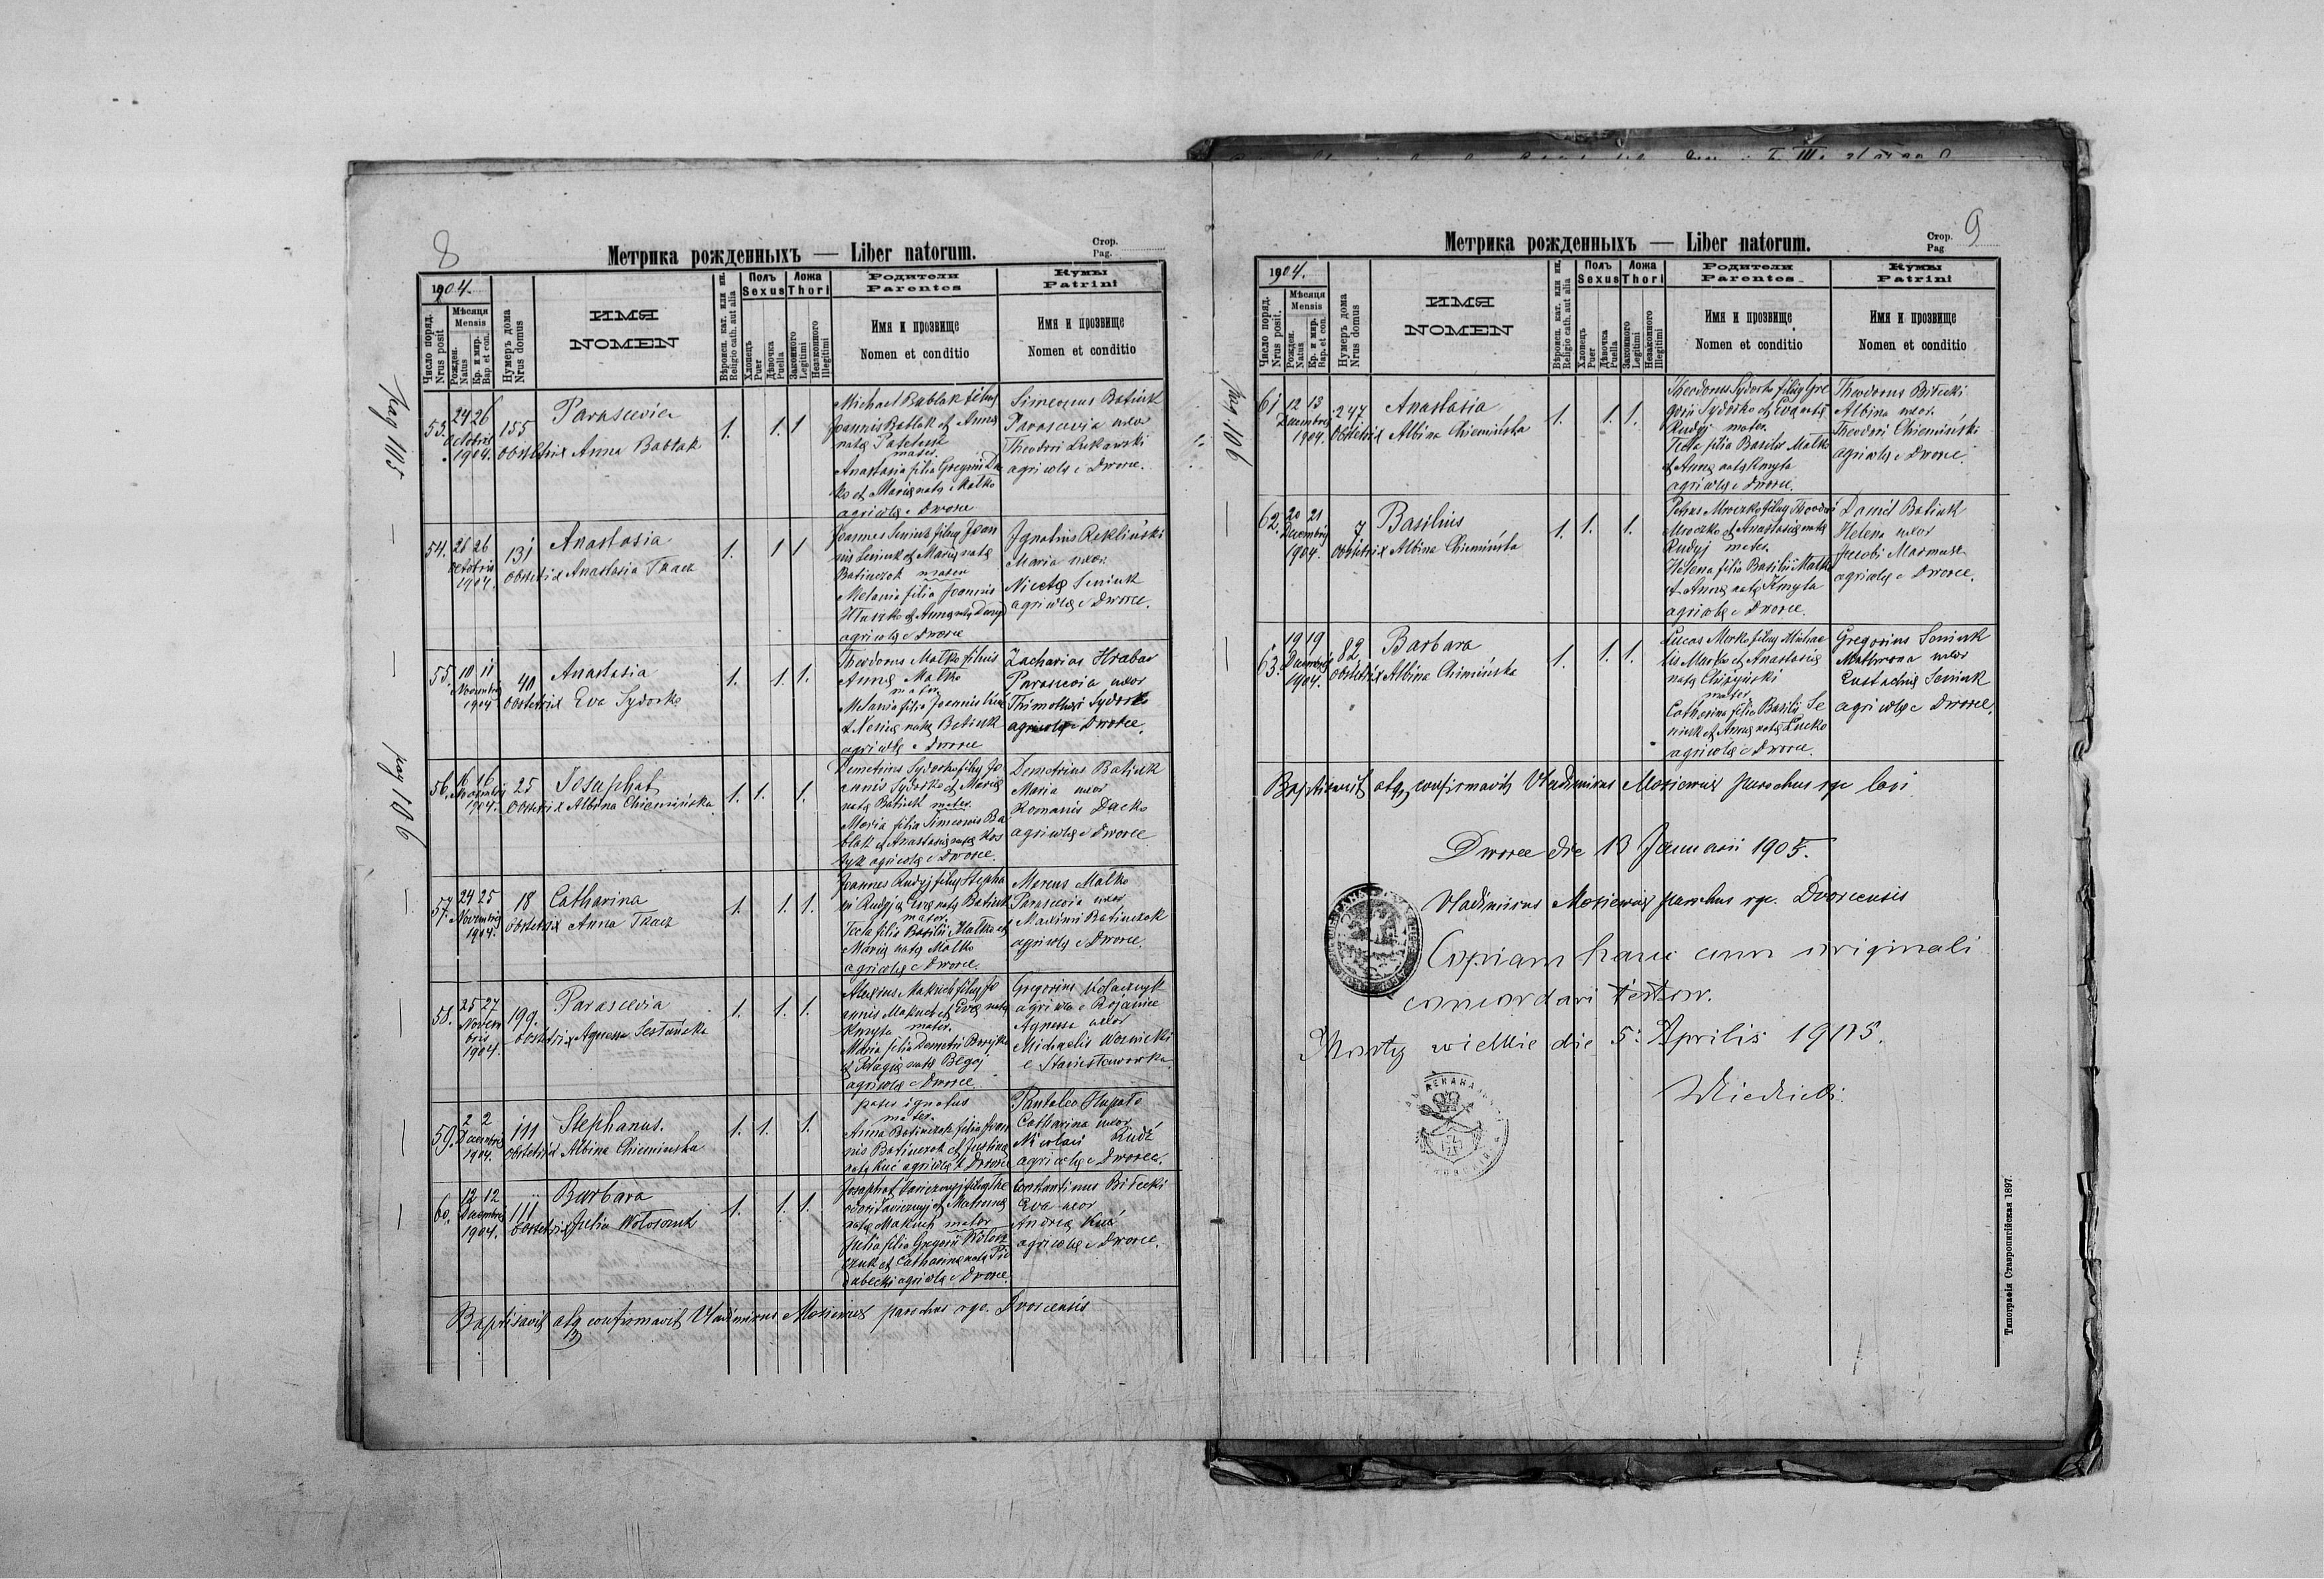 8
Метрика рожденныхъ — Liber natorum.
Стор.
Pag.
1904.
Число поряд.
Nrus posit
Мѣсяця
Mensis
Рожден.
Natus
Кр. и мир.
Bap. et con.
Нумеръ дома
Nrus domus
ИМЯ
NOMEN
Вѣроисп. кат. или ин.
Religio cath. aut alia
Полъ
Sexus
Хлопець
Puer
Дѣвочка
Puella
Ложа
Thori
Законного
Legitimi
Незаконного
Illegitimi
Родители
Parentes
Имя и прозвище
Nomen et conditio
Кумы
Patrini
Имя и прозвище
Nomen et conditio
Pag 105
Pag 106
53. 24 26
Octobris
1904.
155
Parascevia
obstetrix Anna Babłak
1. 1. 1
Michael Babłak filius
Joannis Babłak et Annae
natae
mater
Anastasia filia Gregorii Da
ko et Mariae natae Malko
agricolae e Dworce
Simeonus Batiuk
Parascevia uxor
Theodori Łukowski
agricolae e Dworce.
54. 26 26
Octobris
1904.
131
Anastasia
obstetrix Anastasia Tkacz
1. 1 1
Joannes Seniuk filius Joan
nis Seniuk et Mariae natae
Batiuczok mater
Melania filia Joannis
agricolae e Dworce
Ignatius Rekliński
Maria uxor
Nicetae Seniuk
agricolae e Dworce.
55. 10 11
Novembris
1904
40
Anastasia
obstetrix Eva Sydorko
1. 1. 1.
Theodorus Malko filius
Annae Malko
mater
Melania filia Joannis
et Xeniae natae Batiuk
agricolae e Dworce
Zacharias Hrabar
Parascevia uxor
Thimothei Sydorko
agricolae e Dworce.
56. 16 16
Novembris
1904.
25
Josaphat
obstetrix Albina Chiemińska
1. 1. 1.
Demetrius Sydorko filius Jo
annis Sydorko et Mariae
natae Batiuk mater.
Maria filia Simeonis Ba
błak et Anastasiae natae Kos
tyk agricolae e Dworce.
Demetrius Batiuk
Maria uxor
Romanis Dacko
agricolae e Dworce
57. 24 25
Novembris
1904.
18
Catharina
obstetrix Anna Tkacz
1. 1. 1.
Joannes Rudyj filius Stepha
ni Rudyj et Evae natae Batiuk
mater.
Tecla filia Basilii Malko et
Mariae natae Malko
agricolae e Dworce.
Marcus Malko
Parascevia uxor
Maximi Batiuczok
agricolae e Dworce.
58. 25 27
Novem
bris
1904.
199.
Parascevia
obstetrix Agnessa Sestańska
1. 1. 1.
Alexius Makuch filius Jo
annis Makuch et Evae natae
Kmyta mater.
Maria filia Demetri
et Pelagiae natae Blgoj
agricolae e Dworce
Gregorius
agricola e Rojanice
Agnessa uxor
Michaelis Woźnicki
e Stanisławówka.
59. 2 2
Decembris
1904.
111
Stephanus.
obstetrix Albina Chiemińska
1. 1. 1.
pater ignotus
mater.
Anna Batiuczok filia Joan
nis Batiuczok et Justinae
natae Kuć agricolae e Dworce
Pantaleo Hupało
Catharina uxor
Nicolai Kudź
agricolae e Dworce.
60. 12 12
Decembris
1904.
111
Barbara
obstetrix Julia Wołoszuk
1. 1. 1.
Josaphat Janczuryj filius The
odori Janczuryj et Matronae
natae Makuch mater
Julia filia Gregorii Wołosz
czuk et Catharinae natae Pid
dubecki agricolae e Dworce.
Constantinus Bilecki
Eva uxor
Andreae Kuć
agricolae e Dworce.
Baptisavit atq confirmavit Vladimirus Mosiewicz parochus rgc. Dvorcensis
9
Метрика рожденныхъ — Liber natorum.
Стор.
Pag
1904.
Число поряд.
Nrus posit.
Мѣсяця
Mensis
Рожден.
Natus
Кр. и мир.
Bap. et con.
Нумеръ дома
Nrus domus
ИМЯ
NOMEN
Вѣроисп. кат. или ин.
Religio cath. aut alia
Полъ
Sexus
Хлопець
Puer
Дѣвочка
Puella
Ложа
Thori
Законного
Legitimi
Незаконного
Illegitimi
Родители
Parentes
Имя и прозвище
Nomen et conditio
Кумы
Patrini
Имя и прозвище
Nomen et conditio
Pag. 106
61 12 13
Decembris
1904.
247
Anastasia
obstetrix Albina Chiemińska
1. 1. 1.
Theodorus Sydorko filius Gre
gorii Sydorko et Eva natae
Rudyj mater.
Tecla filia Basilii Malko
et Annae natae Kmyta
agricolae e Dworce.
Theodorus Bilecki
Albina uxor.
Theodori Chiemiński
agricolae e Dworce.
62. 20 21
Decembris
1904.
7
Basilius
obstetrix Albina Chiemińska
1. 1. 1.
Petrus Mroczko filius Theodori
Mroczko et Anastasiae natae
Rudyj mater.
Helena filia Basilii Malko
et Annae natae Kmyta
agricolae e Dworce.
Daniel Batiuk
Helena uxor
Jacobi Marmusz
agricolae e Dworce.
63. 19 19
Decembris
1904.
82
Barbara
obstetrix Albina Chimińska
1. 1. 1.
Lucas Merko filius Michae
lis Merko et Anastasiae
natae
mater.
Catharina filia Basilii Se
niuk et Annae natae Lucko
agricolae e Dworce.
Gregorius Seniuk
Mathrona uxor
Eustachii Seniuk
agricolae e Dworce.
Baptisavit atq confirmavit Vladimirus Mosiewicz parochus rgc loci
Dworce die 13 Januarii 1905.
Vladimirus Mosiewicz parochus rgc. Dvorcensis
Copiam hanc cum originali
concordari testor.
Mosty wielkie die 5. Aprilis 1905.
Типографія Ставропигійская 1897.